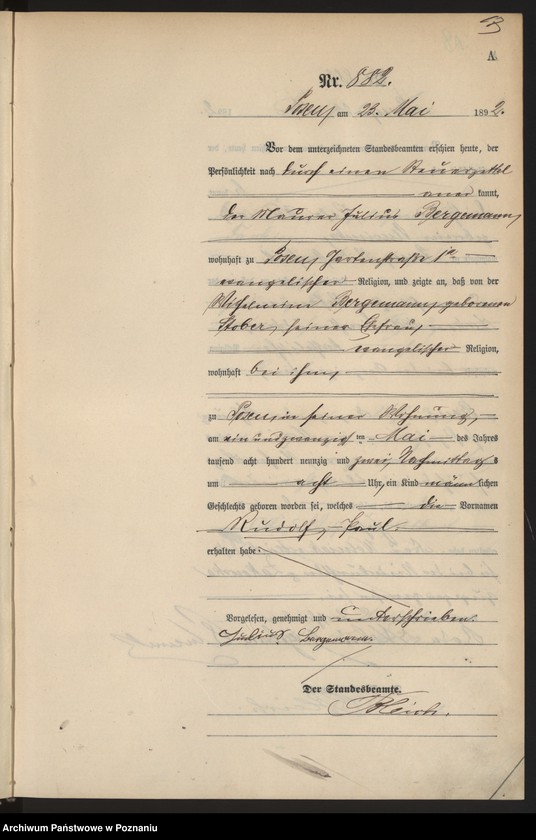 B
A
Nr. 882.
Posen, am 23. Mai 1892.
Vor dem unterzeichneten Standesbeamten erschien heute, der
Persönlichkeit nach durch einen Steuerzettel
aner kannt,
der Maurer Julius Bergemann,
wohnhaft zu Posen, Gartenstraße 1a
evangelischer Religion, und zeigte an, daß von der
Wilhelmine Bergemann, geborenen
Stober, seiner Ehefrau,
evangelischer Religion,
wohnhaft bei ihm,
zu Posen, in seiner Wohnung,
am ein und zwanzig ten Mai des Jahres
tausend acht hundert neunzig und zwei, Nachmittags
um acht Uhr, ein Kind männlichen
Geschlechts geboren worden sei, welches die Vornamen
Rudolf Paul
erhalten habe.
Vorgelesen, genehmigt und unterschrieben.
Julius Bergemann.
Der Standesbeamte.
Archiwum Państwowe w Poznaniu